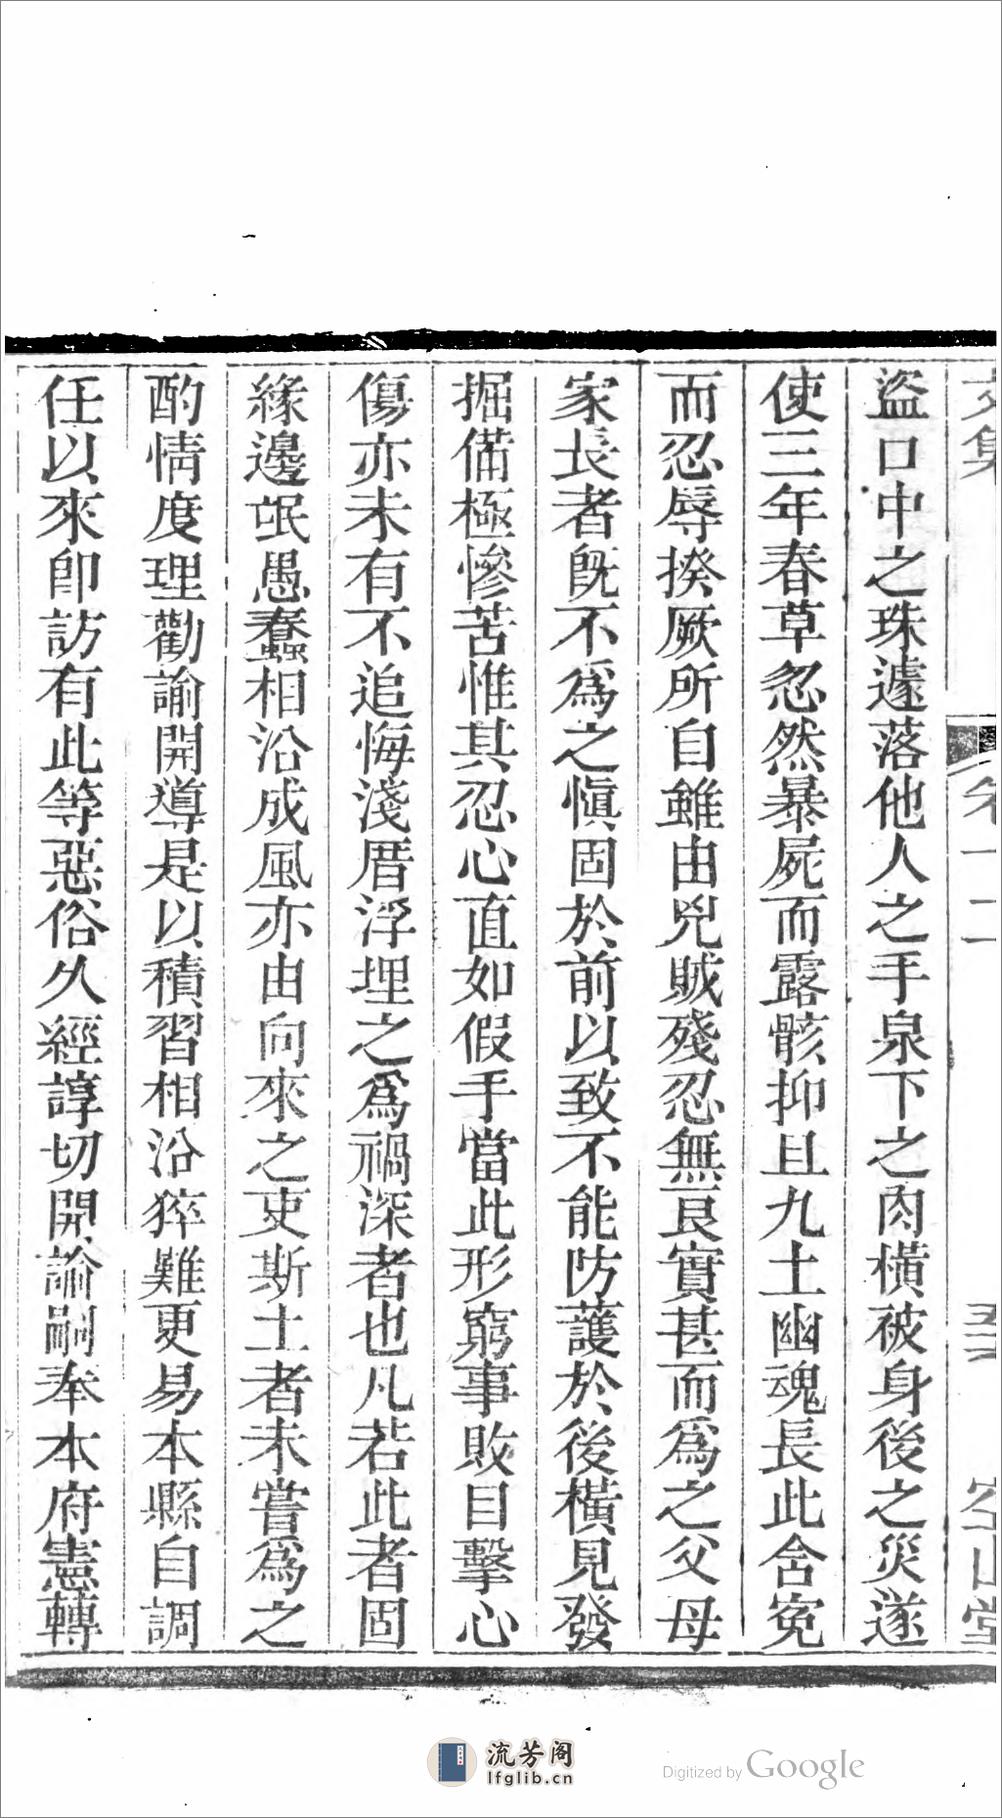 盜口中之珠遽落他人之手泉下之肉橫被身後之災遂
使三年春草忽然暴屍而露骸抑且九土幽魂長此含寃
而忍辱揆厥所自雖由兇賊殘忍無良實甚而爲之父母
家長者旣不爲之愼固於前以致不能防護於後橫見發
掘備極慘苦惟其忍心直如假手當此形窮事敗目擊心
傷亦未有不追悔淺厝浮埋之爲禍深者也凡若此者固
緣邊氓愚蠢相沿成風亦由向來之吏斯土者未嘗爲之
酌情度理勸諭開導是以積習相沿猝難更易本縣自調
任以來卽訪有此等惡俗久經諄切開諭嗣奉本府憲轉
文集
卷十二
空山堂
流芳阁
lfglib.cn
Digitized by Google